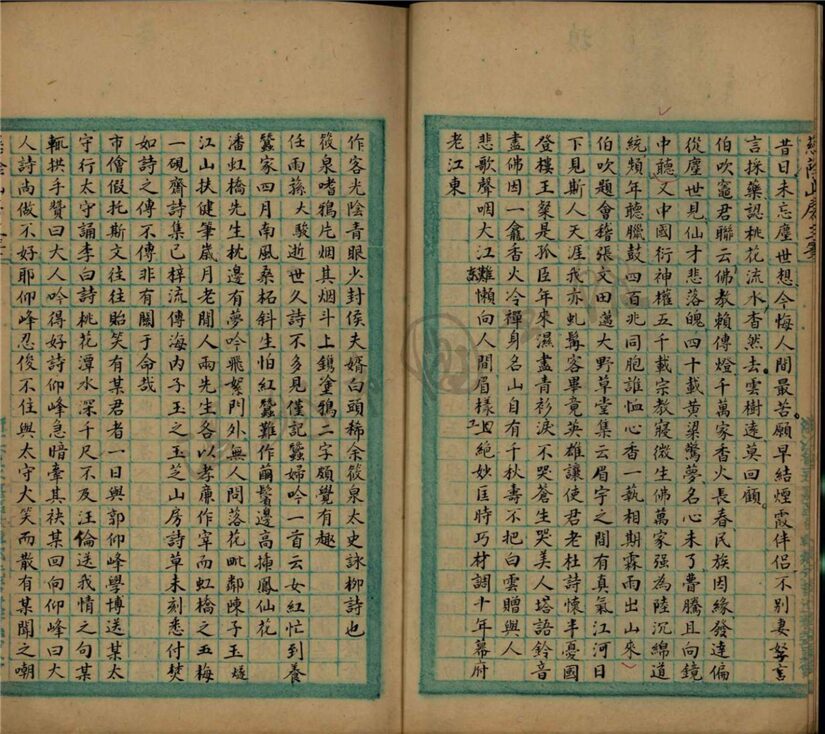 昔日未忘塵世想今悔人間最苦願早結煙霞伴侶不别妻孥言
言採藥認桃花流水杳然去雲樹遠莫回顧
伯吹竈君聯云佛教賴傳燈千萬家香火長春民族因緣發達偏
從塵世見仙才悲落魄四十載黄梁驚夢名心未了瞢騰且向鏡
中聽又中國衍神權五千載宗教寖微生佛萬家强為陸沉綿道
統頻年聽臘鼓四百兆同胞誰恤心香一爇相期霖雨出山來
伯吹題會稽張文田邁大野草堂集云眉宇之間有真氣江河日
下見斯人天涯我亦虬髯客畢竟英雄讓使君老杜詩懷半憂國
登樓王粲是孤臣年來濕盡青衫淚不哭蒼生哭美人塔語鈴音
盡佛因一龕香火冷禪身名山自有千秋壽不把白雲贈與人
悲歌聲咽大江難懶向人間眉樣工絕妙匡時巧材調十年幕府
老江東
作客光陰青眼少封侯夫婿白頭稀余筱泉太史詠柳詩也
筱泉嗜鴉片烟其烟斗上鐫塗鴉二字頗覺有趣
任雨蓀大駿逝世久詩不多見僅記蠶婦吟一首云女紅忙到養
蠶家四月南風桑柘斜生怕紅蠶難作繭鬢邊高揷鳳仙花
潘虹橋先生枕邊有夢吟飛絮門外無人問落花毗鄰陳子玉燧
江山扶健筆歲月老閒人兩先生各以孝廉作宰而虹橋之五梅
一硯齋詩集已梓流傳海内子玉之玉芝山房詩草未刻悉付焚
如詩之傳不傳非有關于命哉
市儈假托斯文往往貽笑有某君者一日與郭仰峰學博送某太
守行太守誦李白詩桃花潭水深千尺不及汪倫送我情之句某
輒拱手贊曰大人吟得好詩仰峰急暗牽其袂某回向仰峰曰大
人詩尚做不好耶仰峰忍俊不住與太守大笑而散有某聞之嘲